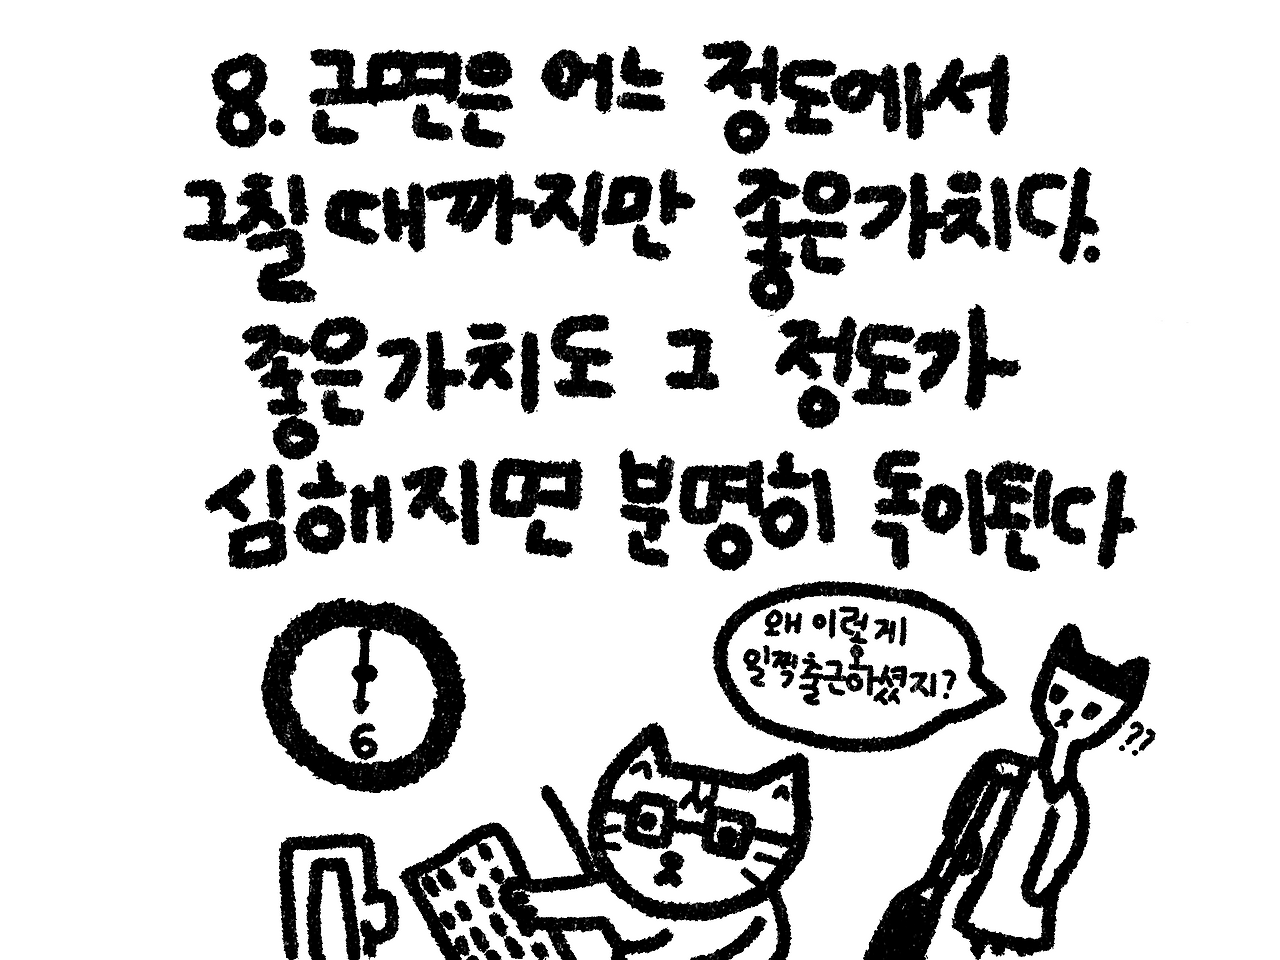 8. 근면은 어느 정도에서
그칠 때까지만 좋은가치다.
좋은가치도 그 정도가
심해지면 분명히 독이된다
왜 이렇게
일찍출근하셨지?
6
??